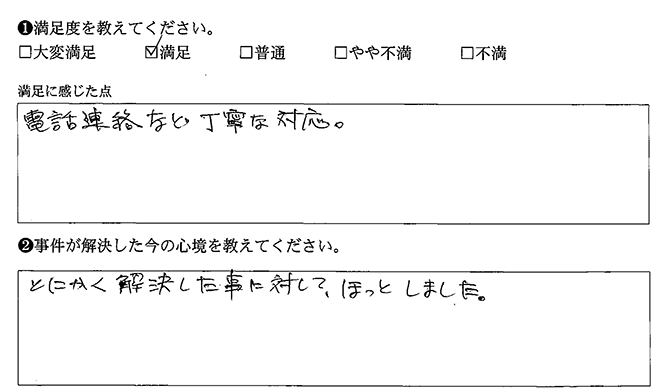 ❶満足度を教えてください。
□大変満足 ☑満足 □普通 □やや不満 □不満
満足に感じた点
電話連絡など丁寧な対応。
❷事件が解決した今の心境を教えてください。
とにかく解決した事に対して、ほっとしました。